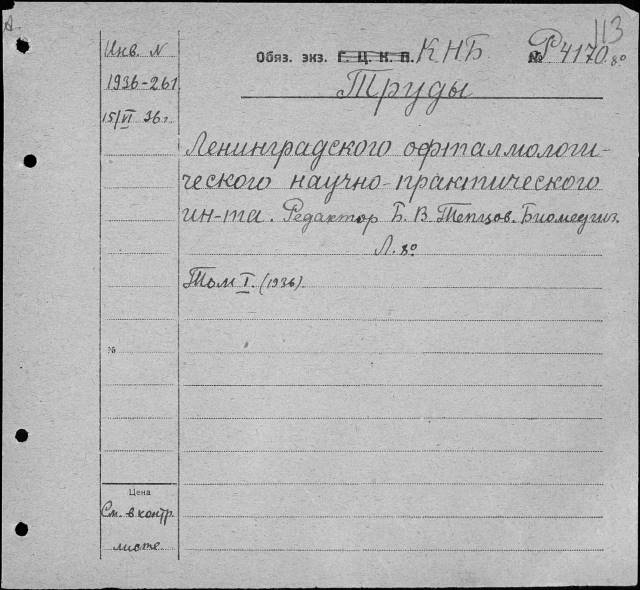 А.
113
Инв. N
Обяз. экз. Г. Ц. К. П. КНБ
№ Р4170. 8º
1936-261
Труды
15/VI 36 г
Ленинградского офталмологи-
ческого научно-практического
ин-та. Редактор Б. В. Тепцов. Биомедгиз.
Л. 8º
Том I. (1936).
№
Цена
См. в контр.
листе